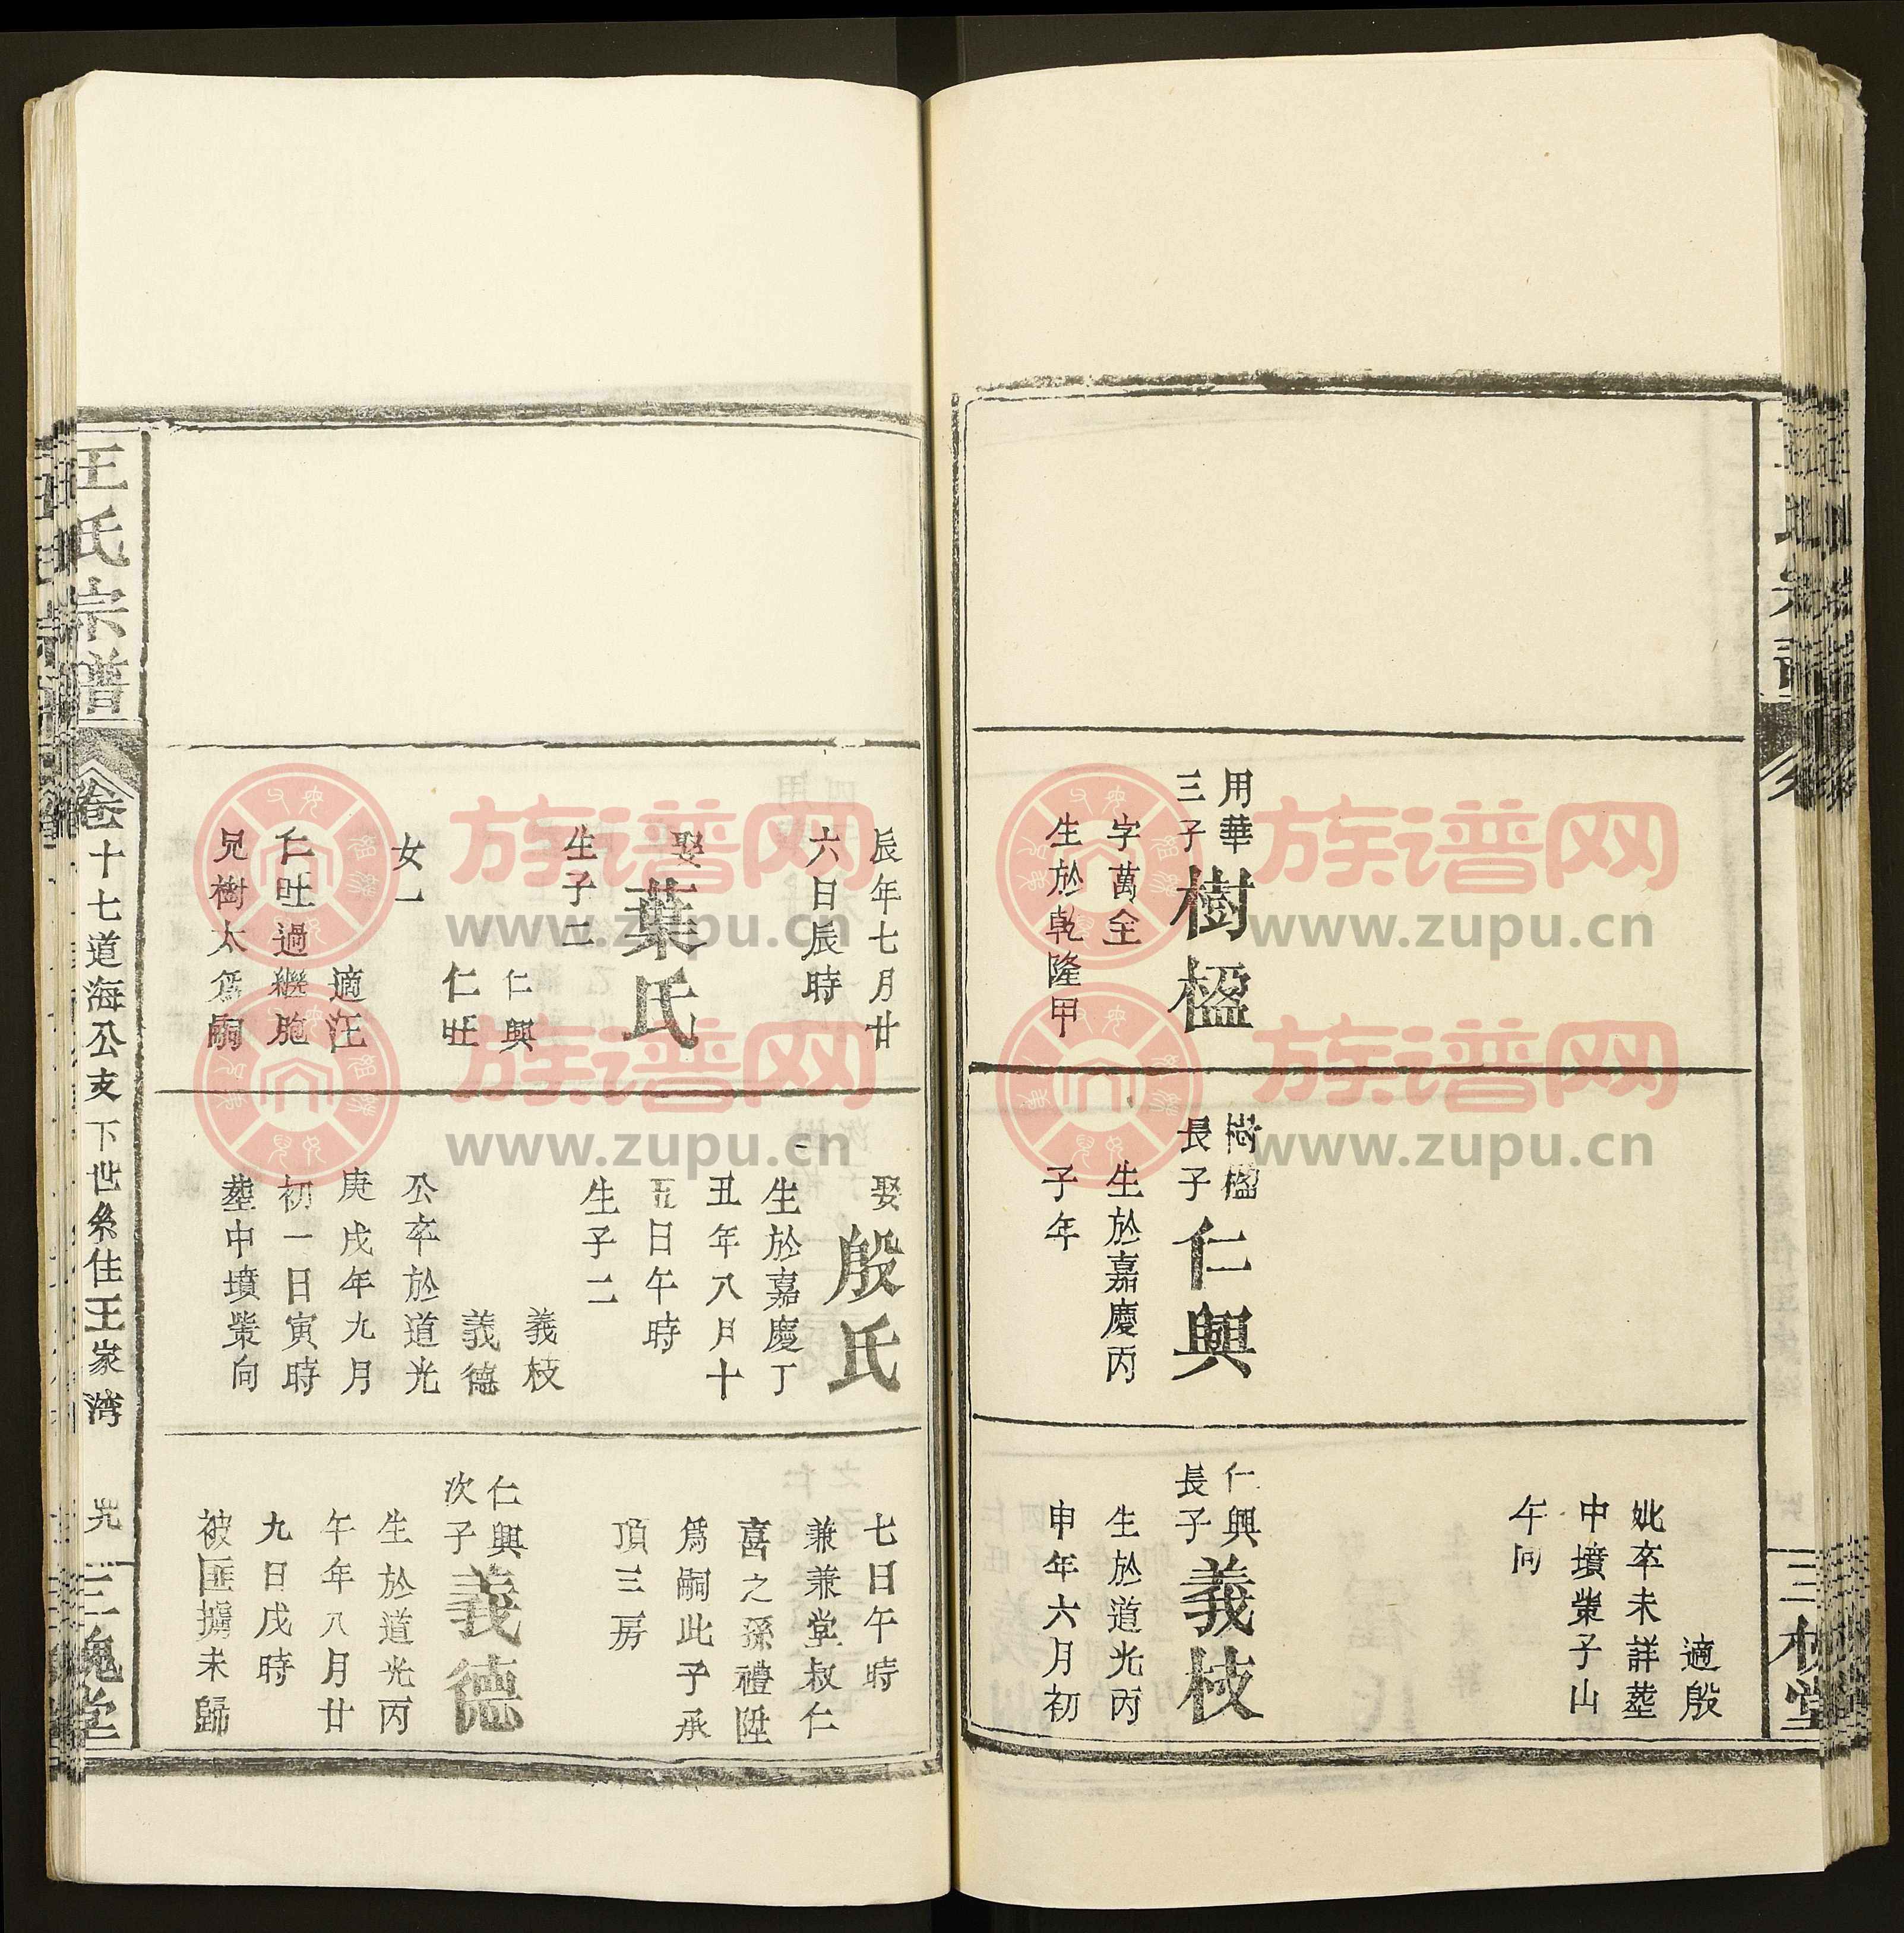 用華
三子
樹楹
字萬全
生於乾隆甲
樹楹
長子
仁興
生於嘉慶丙
子年
適殷
妣卒未詳塟
中墳塋子山
午向
仁興
長子
義枝
生於道光丙
申年六月初
三槐堂
辰年七月廿
六日辰時
娶
葉氏
生子二
仁興
仁旺
女一
適汪
仁旺過繼胞
兄樹太爲嗣
娶
殷氏
生於嘉慶丁
丑年八月十
五日午時
生子二
義枝
義德
公卒於道光
庚戌年九月
初一日寅時
塟中墳塋向
七日午時
兼兼堂叔仁
喜之孫禮陞
爲嗣此子承
頂三房
仁興
次子
義德
生於道光丙
午年八月廿
九日戌時
被匪擄未歸
王氏宗譜
卷十七道海公支下世系住王家湾
三槐堂
族谱网
www.zupu.cn
族谱网
www.zupu.cn
族谱网
www.zupu.cn
族谱网
www.zupu.cn